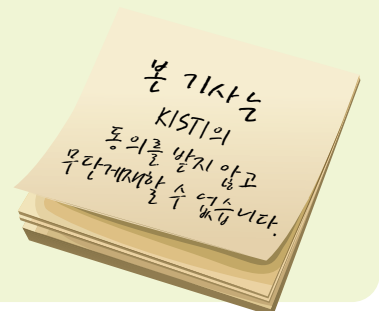 본 기사는
KISTI의
동의를 받지 않고
무단게재할 수 없습니다.